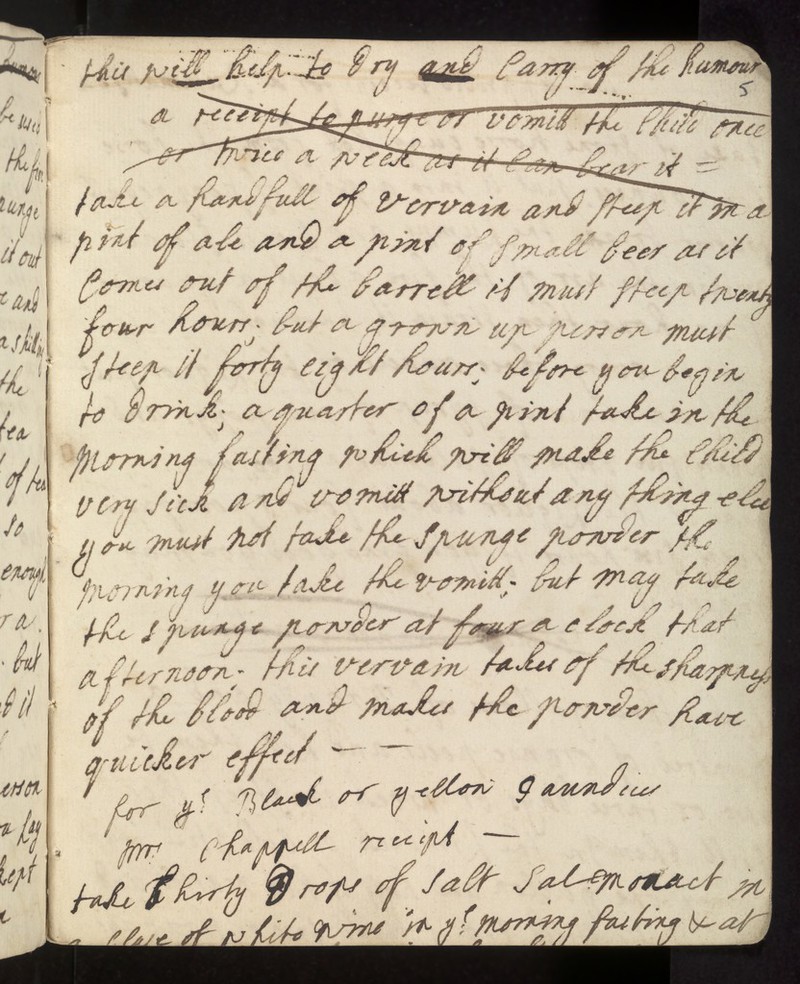 this will help to dry and Carry of the humour
5
a receipt to purge or vomitt the Child once
or twice a week as it Can bear it =
take a handfull of vervain and steep it in a
pint of ale and a pint of small beer as it
Comes out of the barrell it must steep twenty
four hours. but a grown up person must
steep it forty eight hours; before you begin
to drink; a quarter of a pint take in the
morning fasting which will make the Child
very sick and vomitt without any thing else
you must not take the spunge powder the
morning you take the vomitt; but may take
the spunge powder at four a clock that
afternoon. this vervain takes of the sharpness
of the blood and makes the powder have
quicker effect — —
for ye Black or yellow Jaundies
Mrs Chappell receipt —
take thirty Drops of salt Salemonact in
a Glase of white wine in ye morning fasting & at
be used
the
it out
and
the
tea
of tea
so
enough
or a
but
it
person
kept